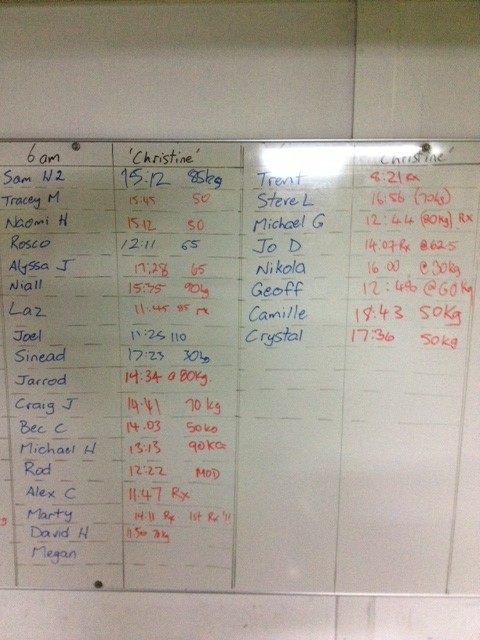 6am 'Christine'
Sam N2 15:12 85kg
Tracey M 15:45 50
Naomi H 15:12 50
Rosco 12:11 65
Alyssa J 17:28 65
Niall 15:35 90kg
Laz 11:45 85 rx
Joel 11:25 110
Sinead 17:23 30kg
Jarrod 14:34 @ 80kg.
Craig J 14:41 70 kg
Bec C 14.03 50kg
Michael H 13:13 90KG
Rod 12:22 MOD
Alex C 11:47 Rx
Marty 14:11 Rx 1st Rx'!!
David H 1150
Megan
'Christine'
Trent 8:21 rx
Steve L 16:56 (70kg)
Michael G 12:44 (80kg) Rx
Jo D 14:07 Rx @62.5
Nikola 16:00 @30kg
Geoff 12:48 @60kg
Camille 18:43 50kg
Crystal 17:36 50kg